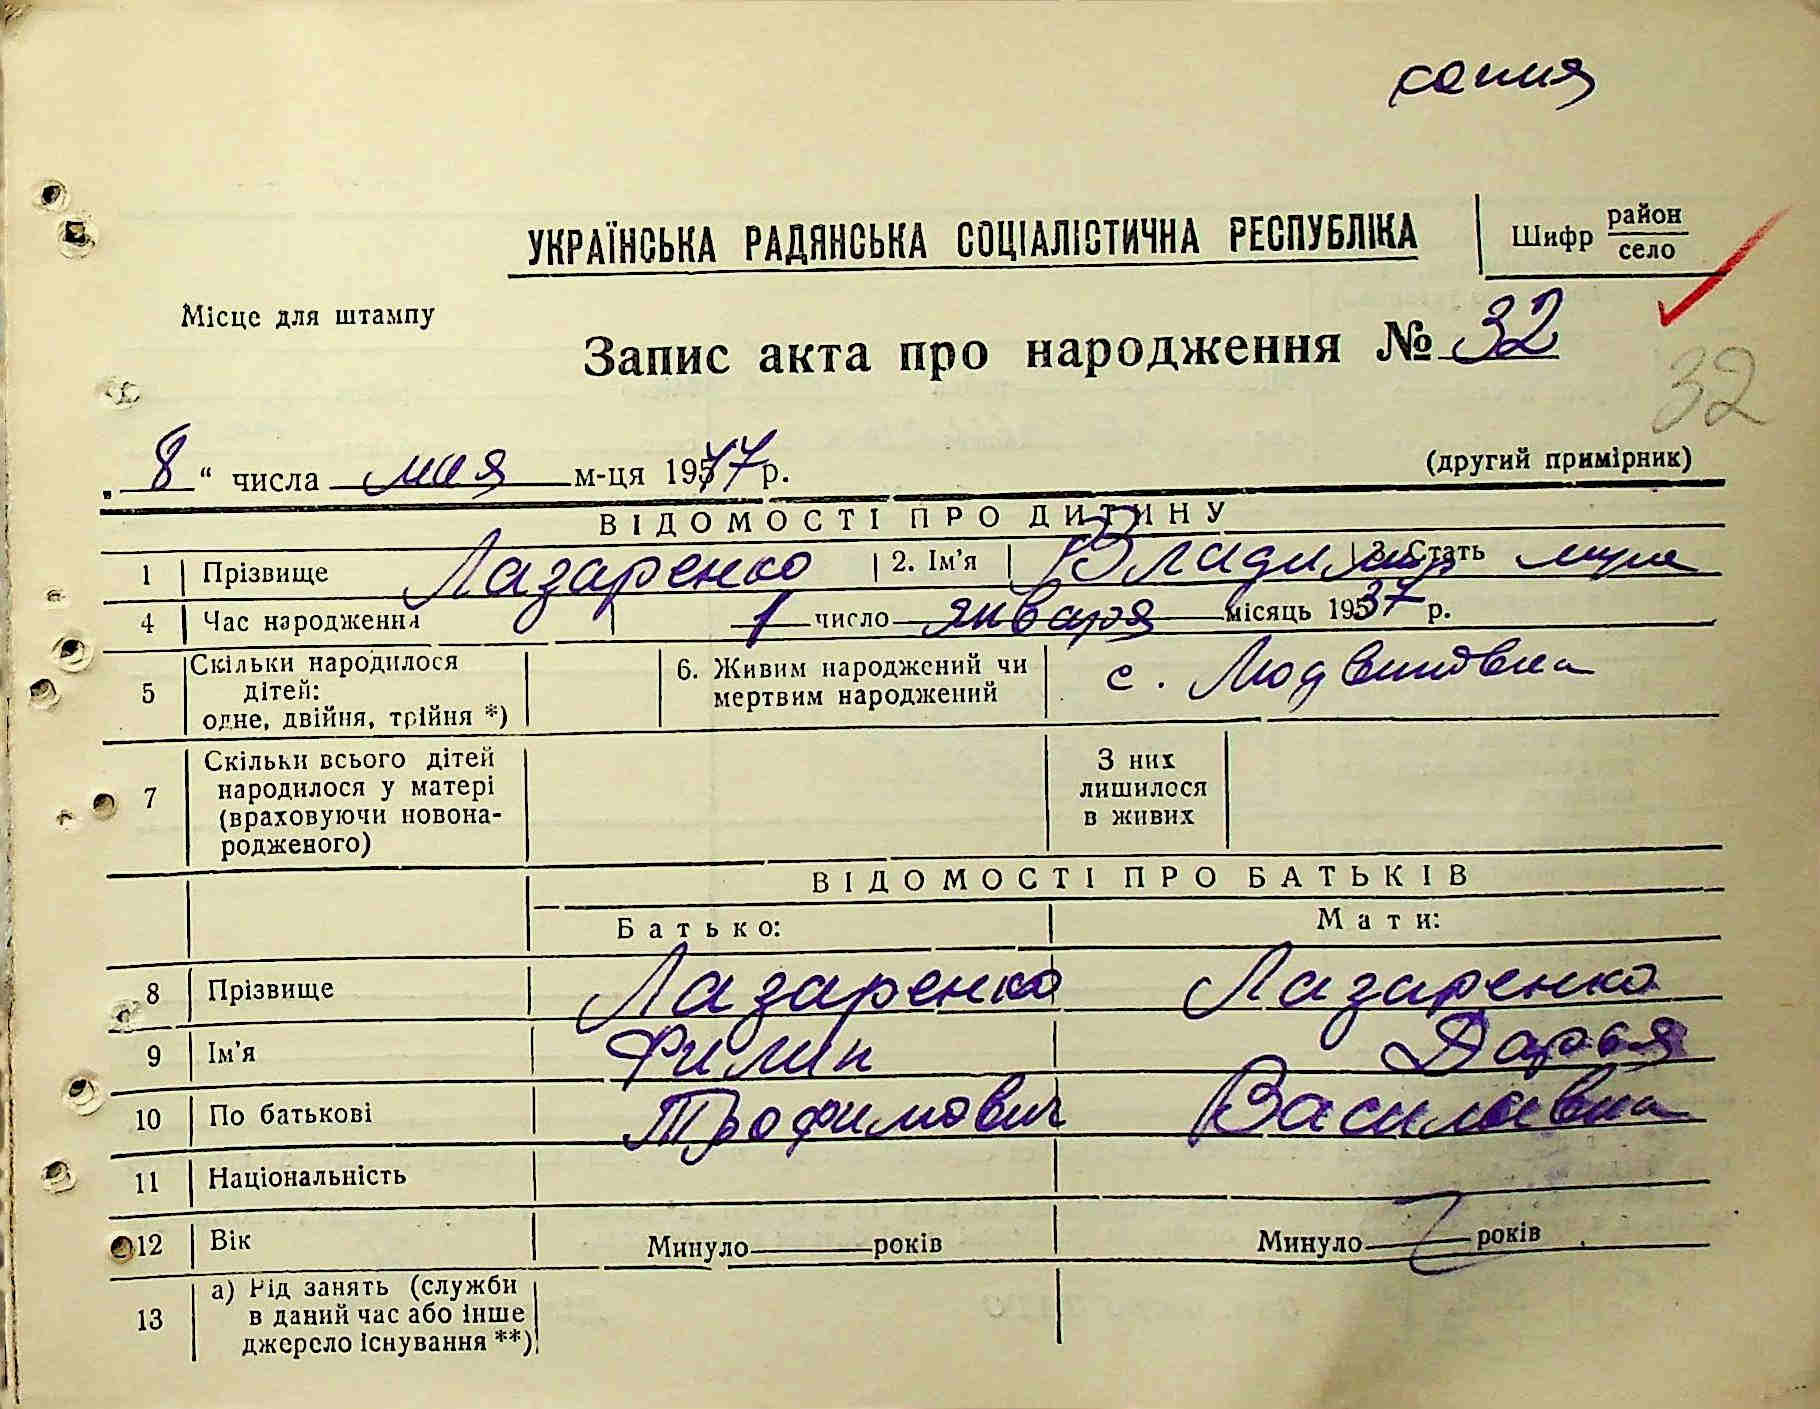 копия
УКРАЇНСЬКА РАДЯНСЬКА СОЦІАЛІСТИЧНА РЕСПУБЛІКА
Шифр район
село
Місце для штампу
Запис акта про народження № 32
32
„8“ числа мая м-ця 1947 р.
(другий примірник)
ВІДОМОСТІ ПРО ДИТИНУ
1 Прізвище Лазаренко 2. Ім'я Владимир 3. Стать муж
4 Час народження 1 число января місяць 1937 р.
5 Скільки народилося дітей: одне, двійня, трійня *) 6. Живим народжений чи мертвим народжений с. Людвиновка
7 Скільки всього дітей народилося у матері (враховуючи новонародженого) З них лишилося в живих
ВІДОМОСТІ ПРО БАТЬКІВ
Батько: Мати:
8 Прізвище Лазаренко Лазаренко
9 Ім'я Филип Дарья
10 По батькові Трофимович Василовна
11 Національність
12 Вік Минуло років Минуло років
13 а) Рід занять (служби в даний час або інше джерело існування **)